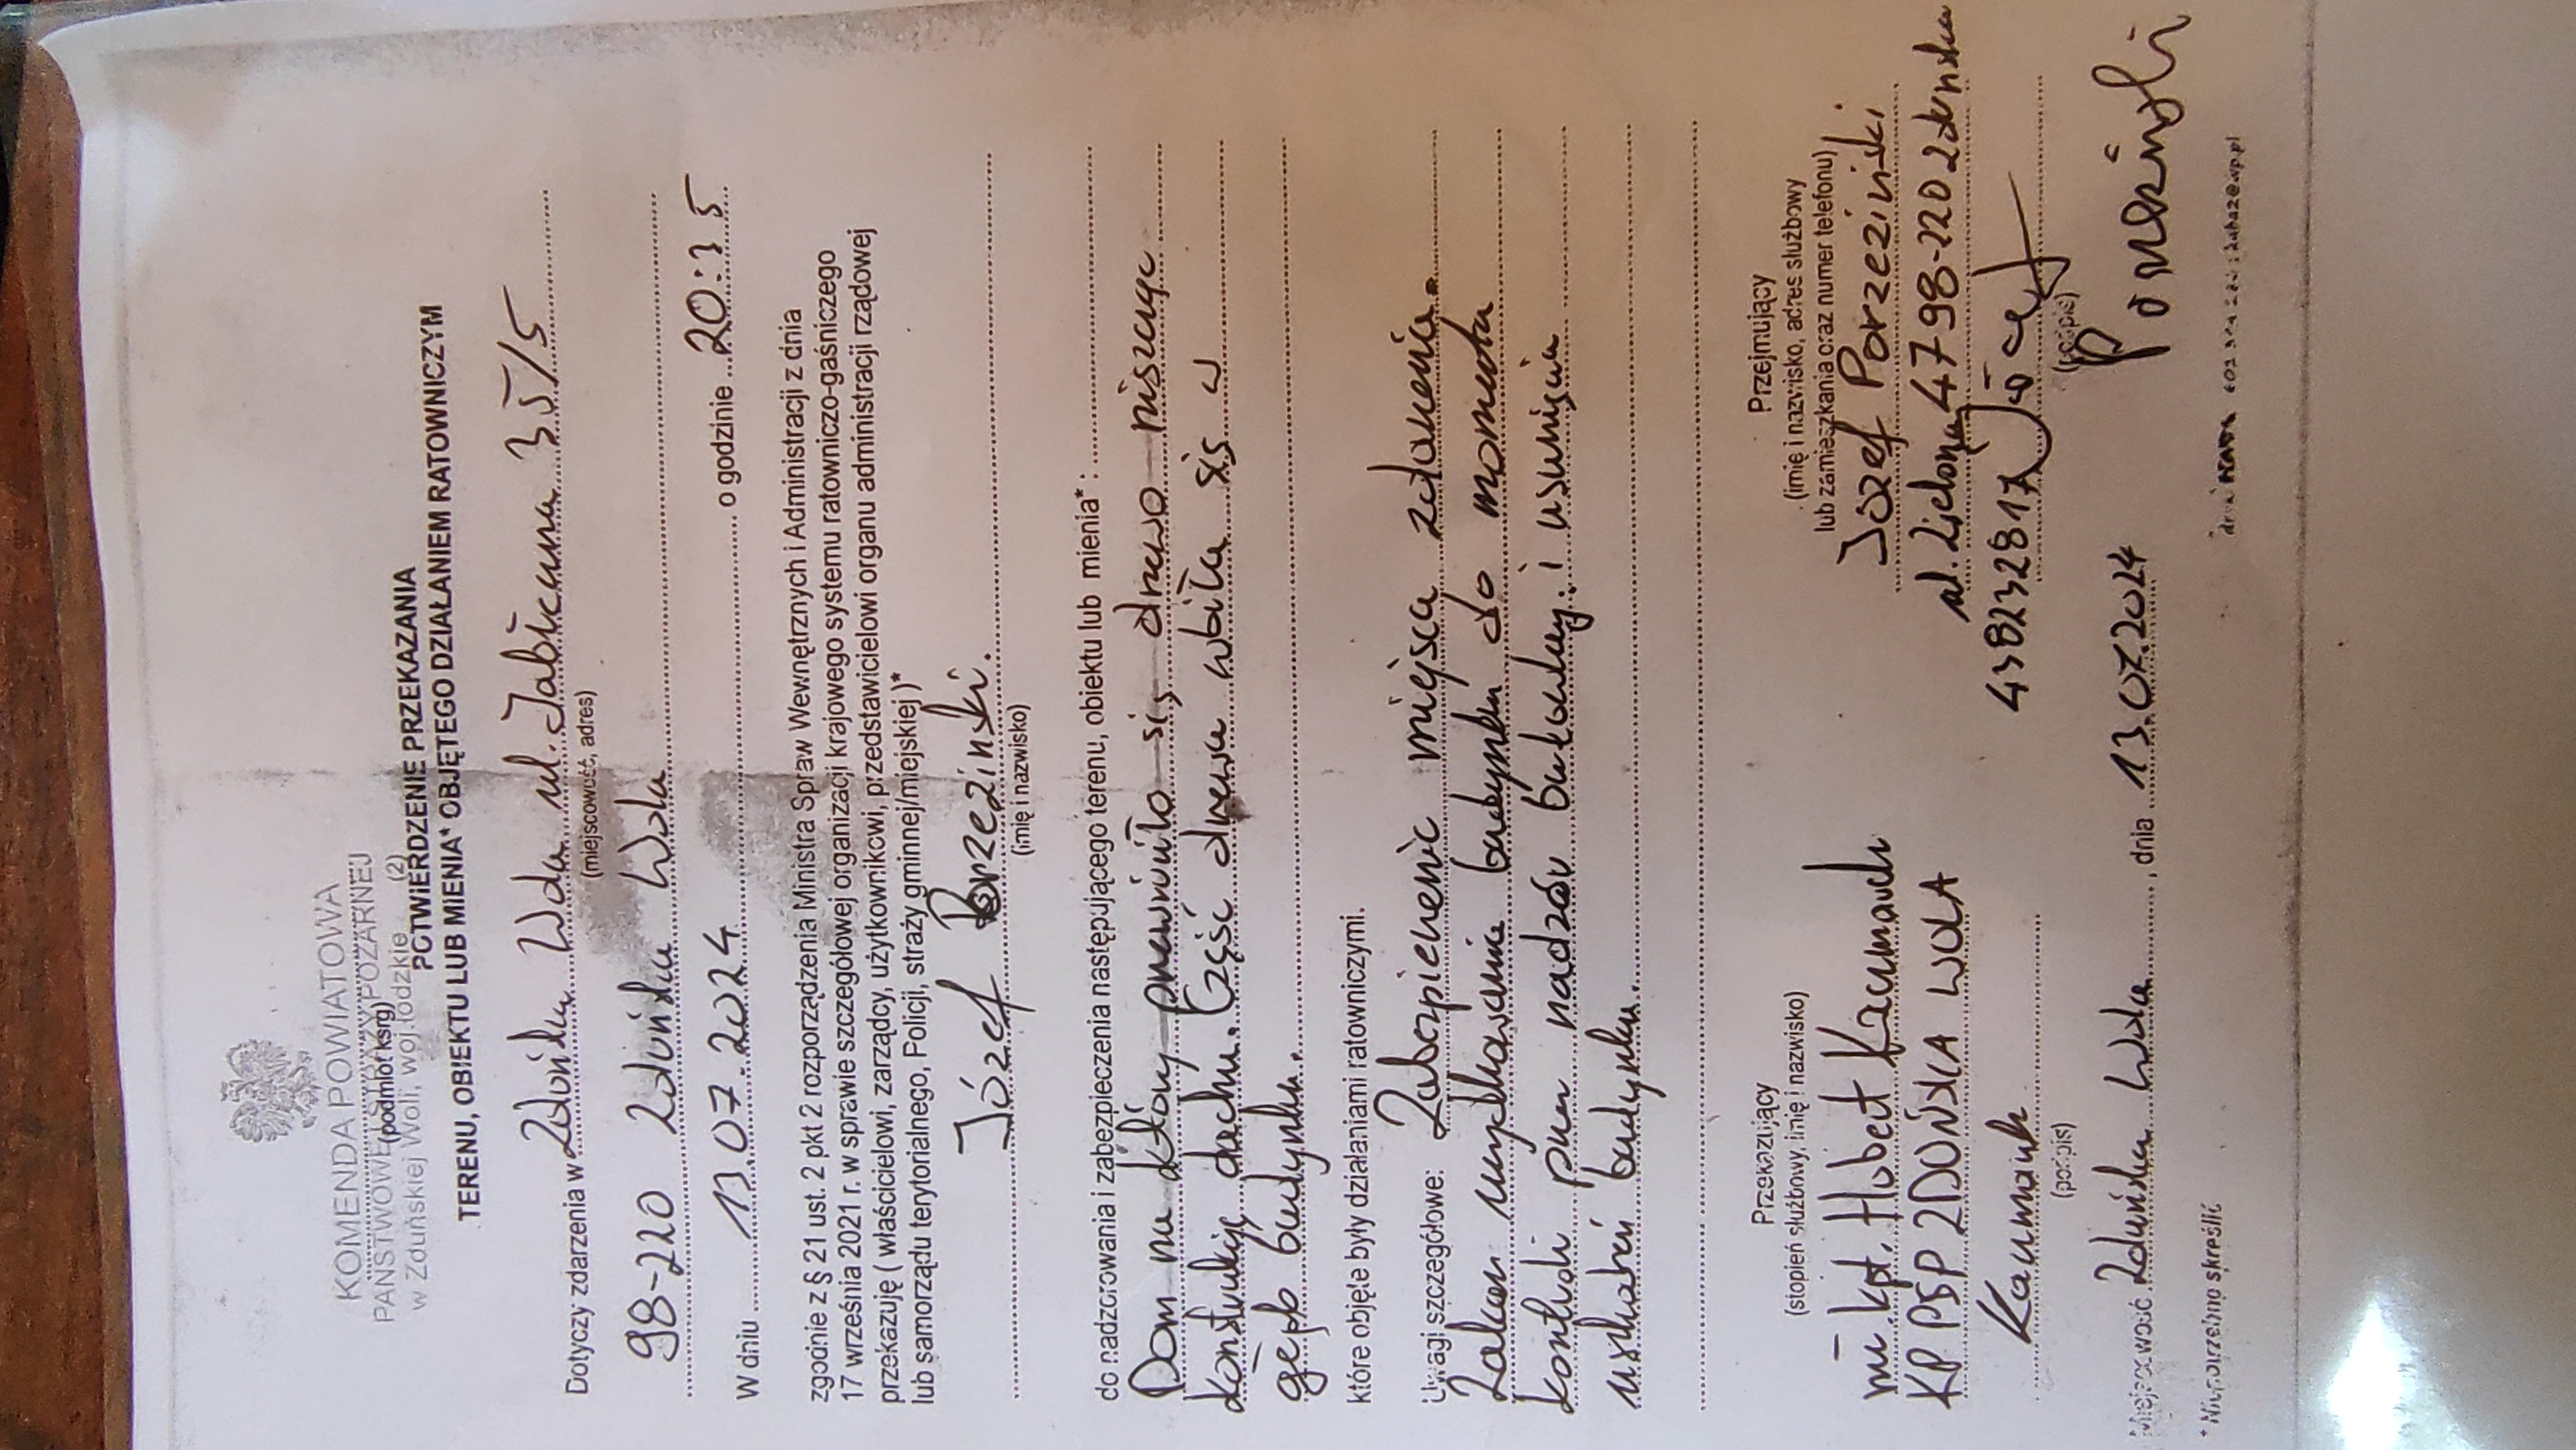 KOMENDA POWIATOWA
PAŃSTWOWEJ STRAŻY POŻARNEJ
(podmiot ksrg)
w Zduńskiej Woli, woj. łódzkie
(2)
POTWIERDZENIE PRZEKAZANIA
TERENU, OBIEKTU LUB MIENIA* OBJĘTEGO DZIAŁANIEM RATOWNICZYM
Dotyczy: zdarzenia w Zduńska Wola ul. Jabłczana 35/5
(miejscowość, adres)
98-220 Zduńska Wola
W dniu 13.07.2024 o godzinie 20:35
zgodnie z § 21 ust. 2 pkt 2 rozporządzenia Ministra Spraw Wewnętrznych i Administracji z dnia
17 września 2021 r. w sprawie szczegółowej organizacji krajowego systemu ratowniczo-gaśniczego
przekazuję ( właścicielowi, zarządcy, użytkownikowi, przedstawicielowi organu administracji rządowej
lub samorządu terytorialnego, Policji, straży gminnej/miejskiej )*
Józef Porzeziński.
(imię i nazwisko)
do nadzorowania i zabezpieczenia następującego terenu, obiektu lub mienia* :
Dom na który przewróciło się drzewo niszcząc
konstrukcję dachu. Część drzewa wbiła się w
głąb budynku.
które objęte były działaniami ratowniczymi.
Uwagi szczegółowe: Zabezpieczenie miejsca zdarzenia.
Zakaz użytkowania budynku do momentu
kontroli przez nadzór budowlany i usunięcia
uszkodzeń budynku.
Przekazujący
(stopień służbowy, imię i nazwisko)
mł. kpt. Hubert Kaczmarek
KP PSP ZDUŃSKA WOLA
Kaczmarek
(podpis)
Przejmujący
(imię i nazwisko, adres służbowy
lub zamieszkania oraz numer telefonu)
Józef Porzeziński
ul. Zielona 47 98-220 Zduńska
438232817 Józef
(podpis)
Porzeziński
Miejscowość Zduńska Wola, dnia 13.07.2024
* Niepotrzebne skreślić